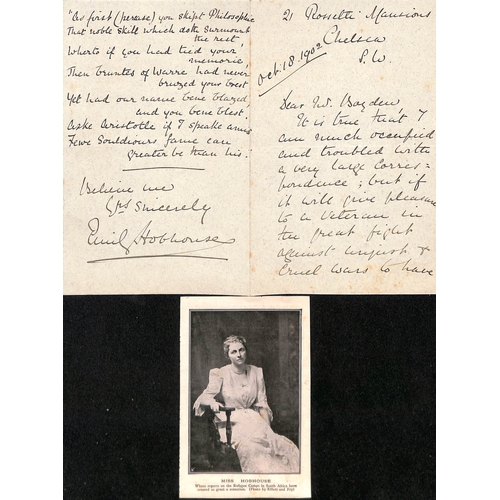 21 Rossetti Mansions
Chelsea
S.W.
Oct. 18. 1902
Dear Mr.
It is true that I
am much occupied
and troubled with
a very large Corres-
pondence; but if
it will give pleasure
to a Veteran in
the great fight
against unjust &
Cruel wars to have
"As first (percase) you skipt Philosophie
That noble skill which doth surmount
the rest,
Wherto if you had tied your
memorie
Then bruntes of Warre had never
bruzed your brest
Yet had our name bene blazed
and you bene blest.
Aske Aristotle if I speake amis
Fewe Souldiours fame can
greater be than his."
Believe me
Yrs Sincerely
Emily Hobhouse
MISS HOBHOUSE
Whose reports on the Refugee Camps in South Africa have
created so great a sensation. (Photo by Elliott and Fry)